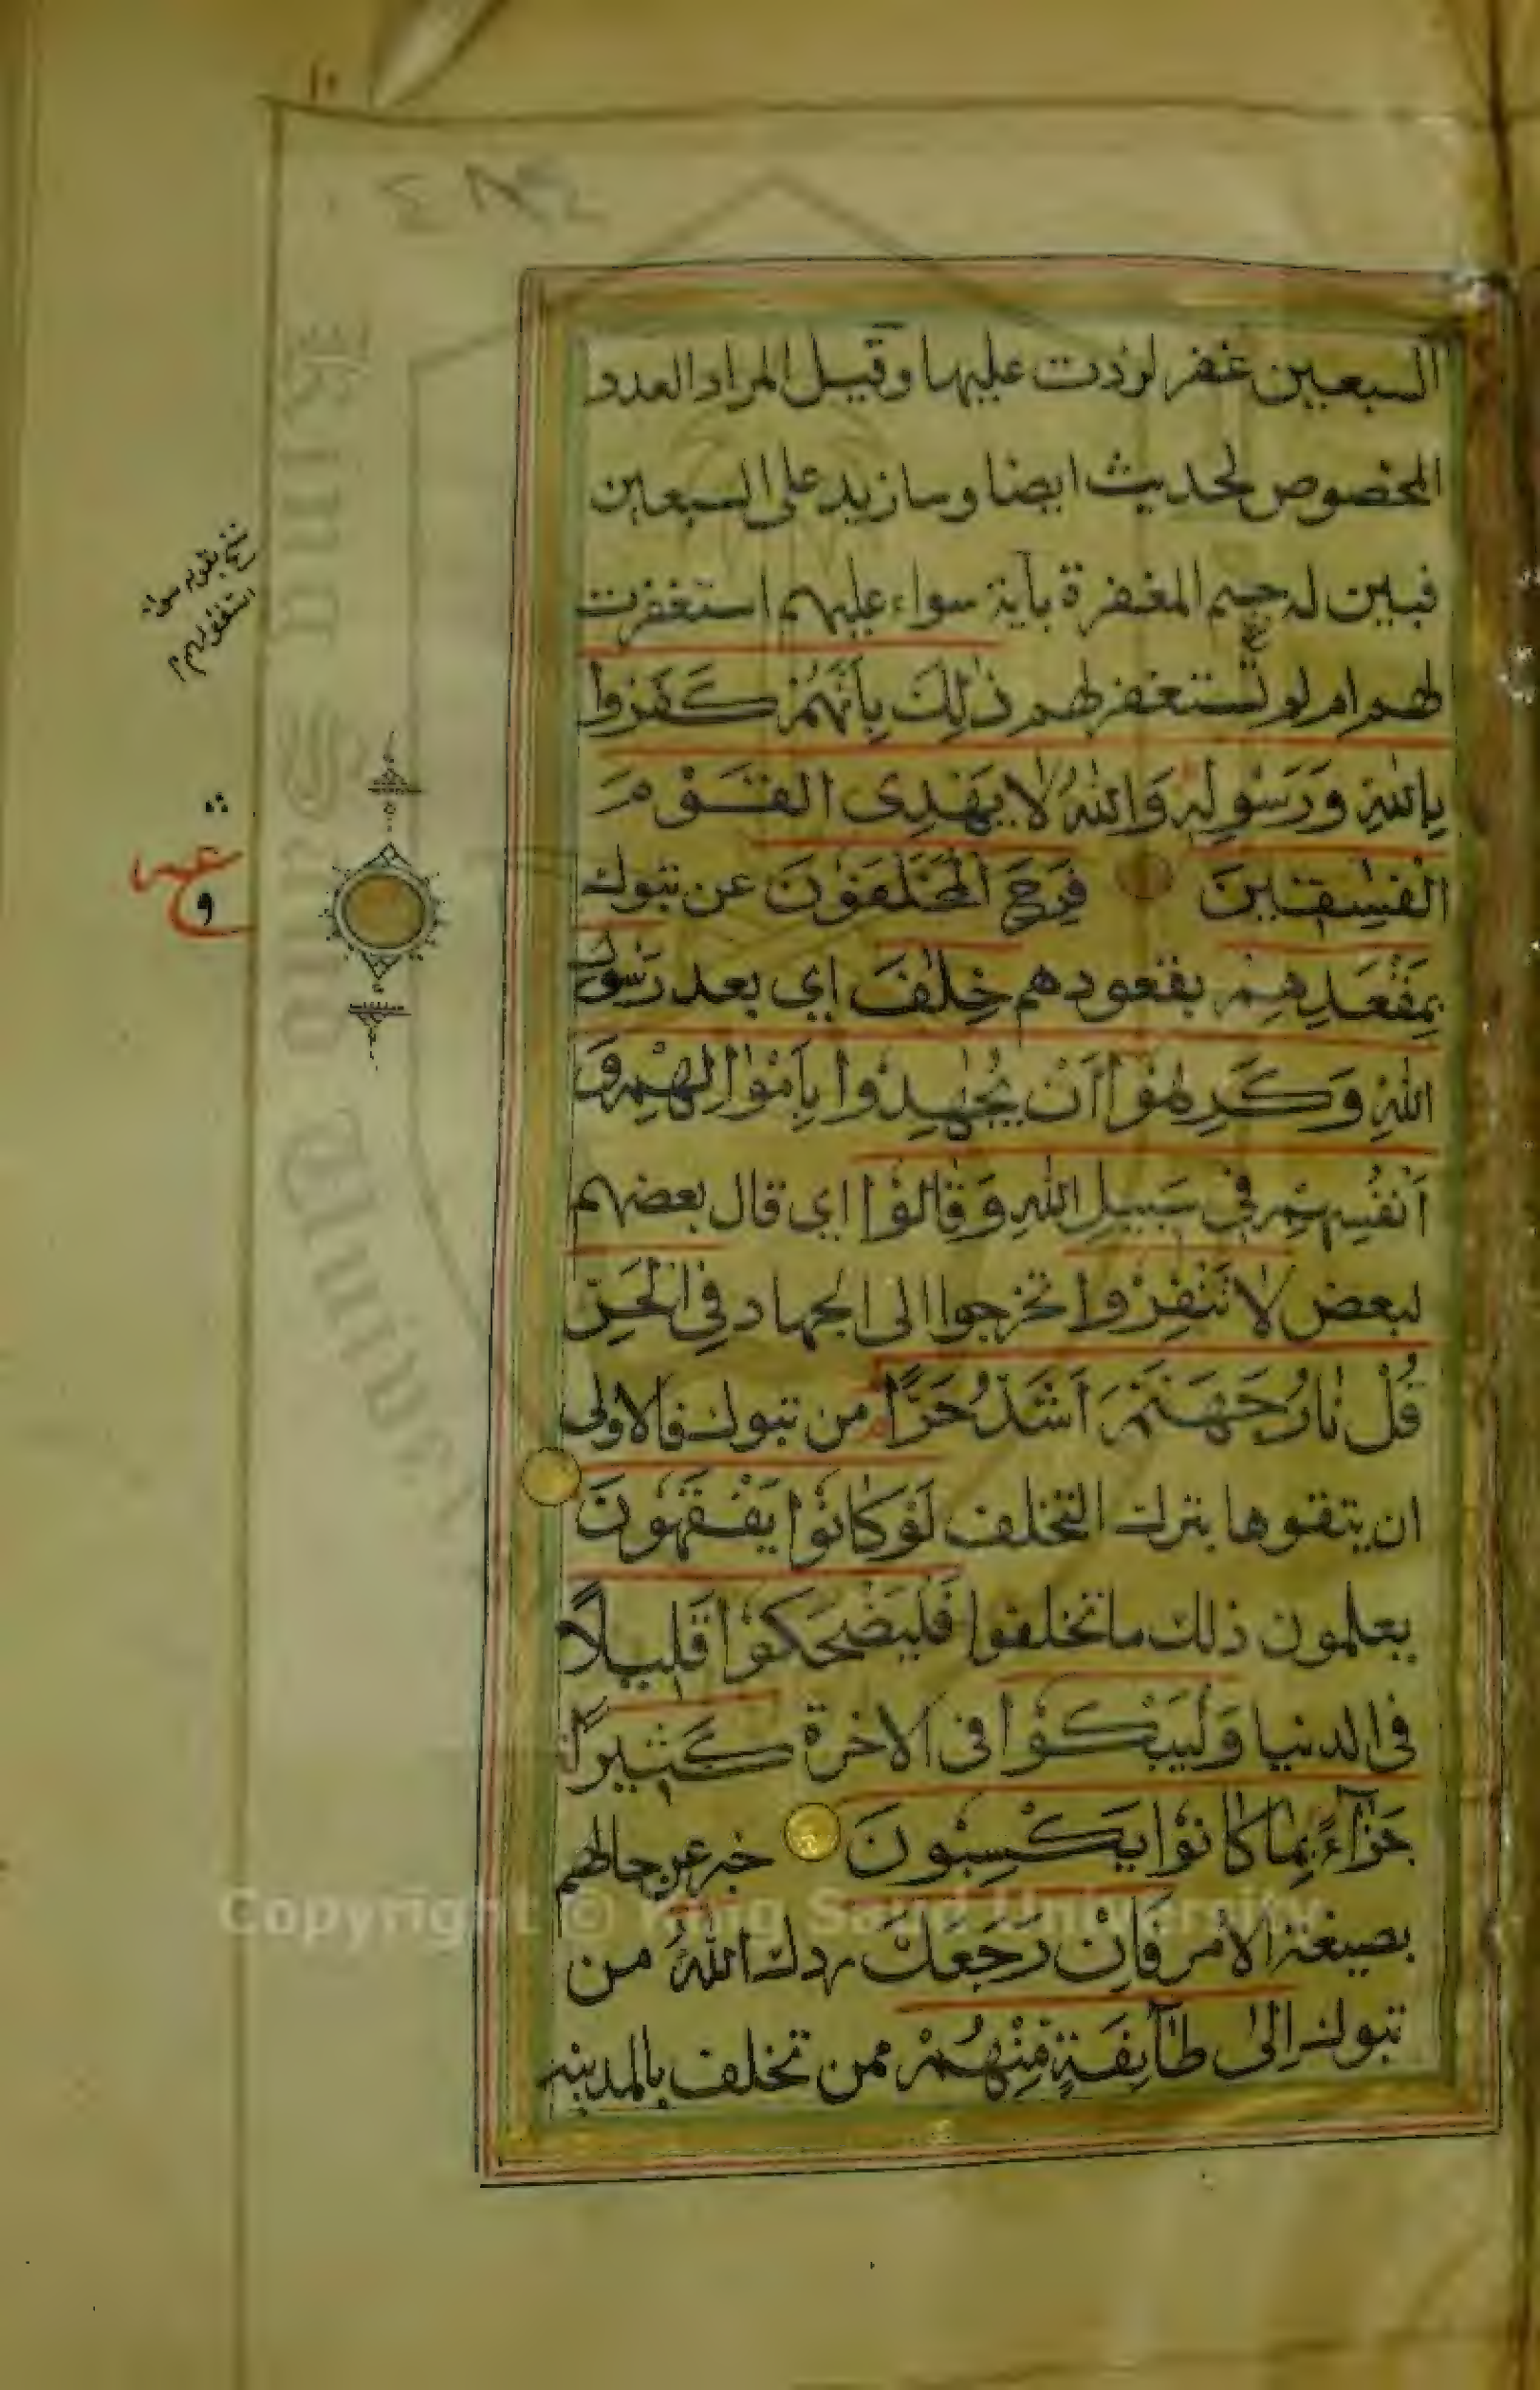 السبعين غفر لزدت عليها وقيل المراد العدد
المخصوص لحديث ايضا وسازيد على السبعين
فبين له حسم المغفرة بآية سواء عليهم استغفرت
لهم ام لو تستغفر لهم ذٰلِكَ بِأَنَّهُمْ كَفَرُوا
بِاللّٰهِ وَرَسُولِهِ وَاللّٰهُ لَا يَهْدِى الْقَوْمَ
الْفٰسِقِينَ فَرِحَ الْمُخَلَّفُونَ عن تبوك
بِمَقْعَدِهِمْ بقعودهم خِلٰفَ اي بعد رَسُولِ
اللّٰهِ وَكَرِهُوا أَنْ يُجٰهِدُوا بِأَمْوَالِهِمْ وَ
أَنْفُسِهِمْ فِي سَبِيلِ اللّٰهِ وَقَالُوا اي قال بعضهم
لبعض لَا تَنْفِرُوا تخرجوا الى الجهاد فِي الْحَرِّ
قُلْ نَارُ جَهَنَّمَ أَشَدُّ حَرًّا من تبوك فالاولى
ان يتقوها بترك التخلف لَوْ كَانُوا يَفْقَهُونَ
يعلمون ذلك ما تخلفوا فَلْيَضْحَكُوا قَلِيلًا
فى الدنيا وَلْيَبْكُوا فى الاخرة كَثِيرًا
جَزَآءً بِمَا كَانُوا يَكْسِبُونَ خبر عن حالهم
بصيغة الامر فَإِنْ رَجَعَكَ ردك اللّٰهُ من
تبوك إِلَىٰ طَآئِفَةٍ مِنْهُمْ ممن تخلف بالمدينه
Copyright © King Saud University